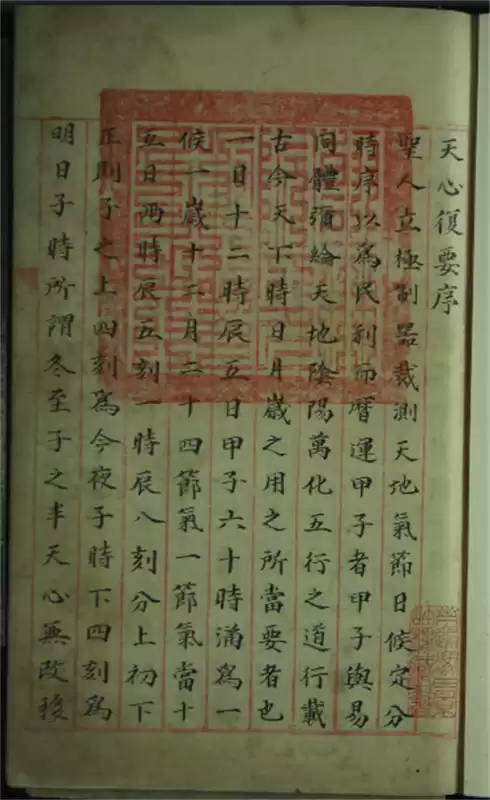 天心復要序
聖人立極制器裁測天地氣節日候定分
時序以為民利而曆運甲子者甲子與易
同體彌綸天地陰陽萬化五行之道行載
古今天下時日月歲之用之所當要者也
一日十二時辰五日甲子六十時滿為一
候一歲十二月二十四節氣一節氣當十
五日兩時辰五刻一時辰八刻分上初下
正則子之上四刻為今夜子時下四刻為
明日子時所謂冬至子之半天心無改移